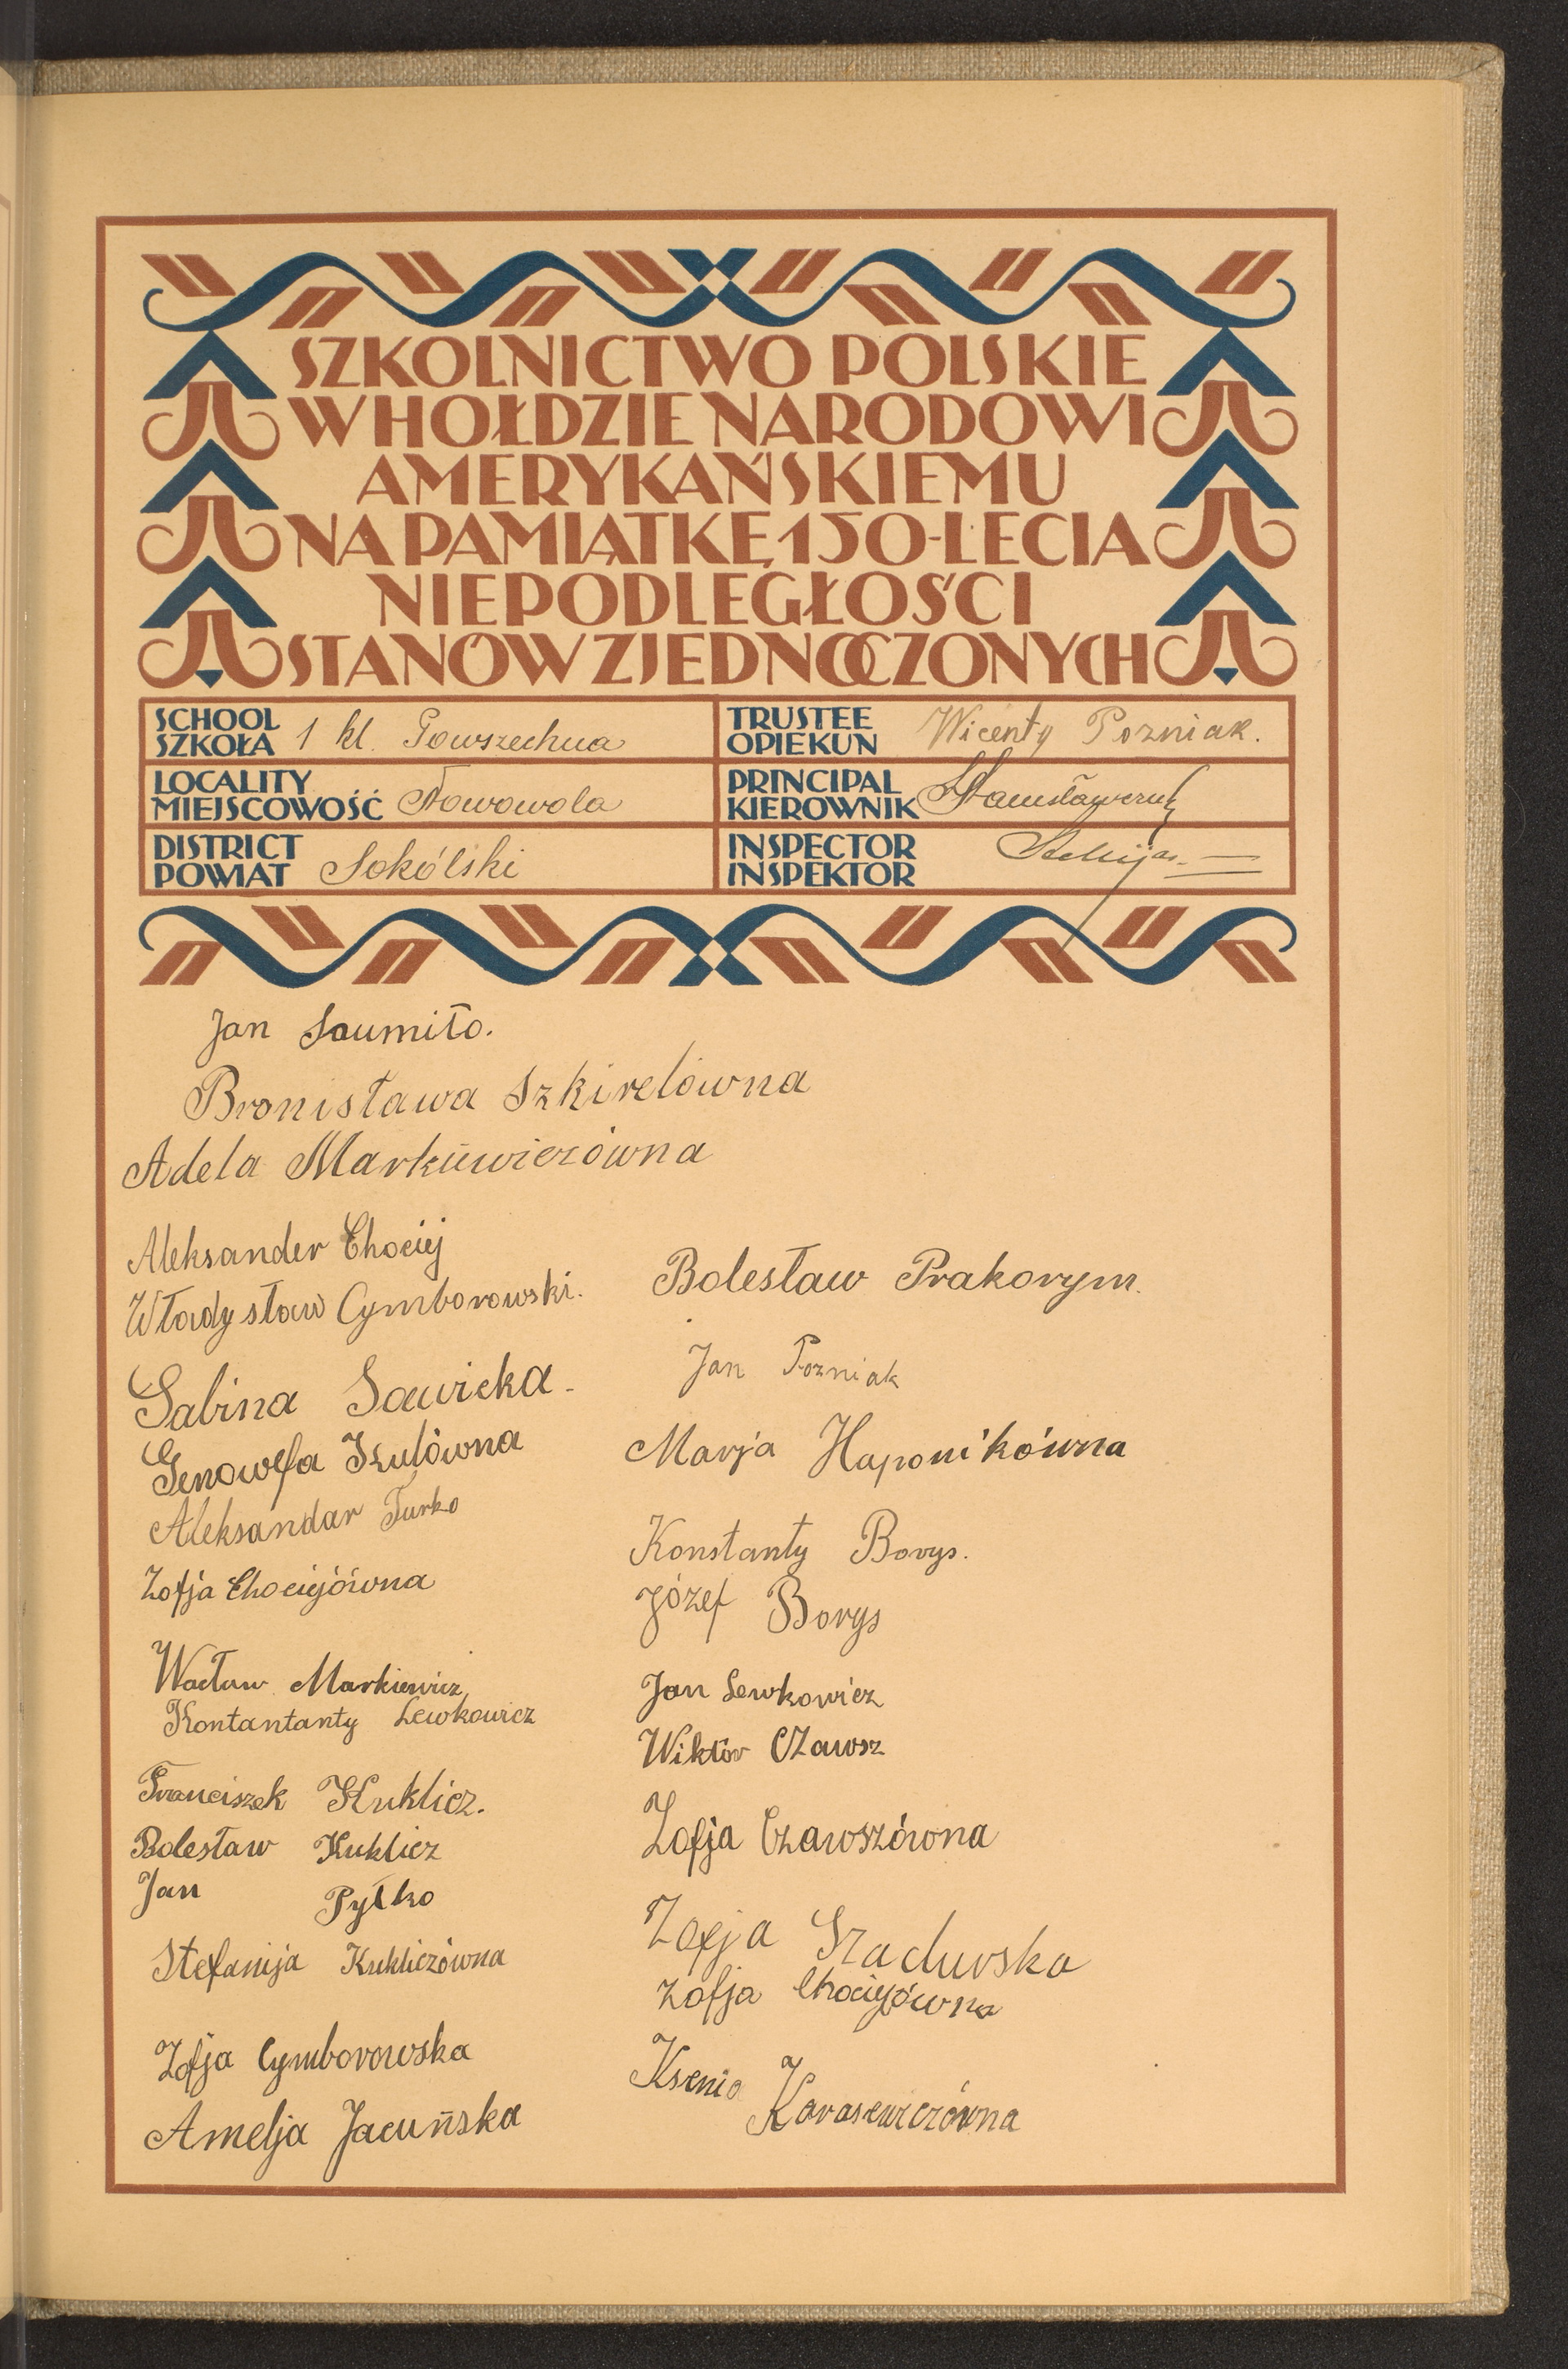 SZKOLNICTWO POLSKIE
W HOŁDZIE NARODOWI
AMERYKAŃSKIEMU
NA PAMIĄTKĘ 150-LECIA
NIEPODLEGŁOŚCI
STANÓW ZJEDNOCZONYCH
SCHOOL
SZKOŁA 1 kl. Powszechna
LOCALITY
MIEJSCOWOŚĆ Nowowola
DISTRICT
POWIAT Sokólski
TRUSTEE
OPIEKUN Wicenty Pozniak.
PRINCIPAL
KIEROWNIK
INSPECTOR
INSPEKTOR
Jan Saumiło.
Bronisława Szkirelówna
Adela Markiewiczówna
Aleksander Chociej
Władysław Cymborowski.
Sabina Sawicka.
Genowefa Szulówna
Aleksandar Turko
Zofja Chociejówna
Wacław Markiewicz
Kontantanty Lewkowicz
Franciszek Kuklicz.
Bolesław Kuklicz
Jan Pyłko
Stefanija Kukliczówna
Zofja Cymborowska
Amelja Jacuńska
Bolesław Prakorym.
Jan Pozniak
Marja Haponikówna
Konstanty Borys.
Józef Borys
Jan Lewkowicz
Wiktór CZawsz
Zofja Czawszówna
Zofja Szadurska
Zofja Chociejówna
Ksenia Karasewiczówna